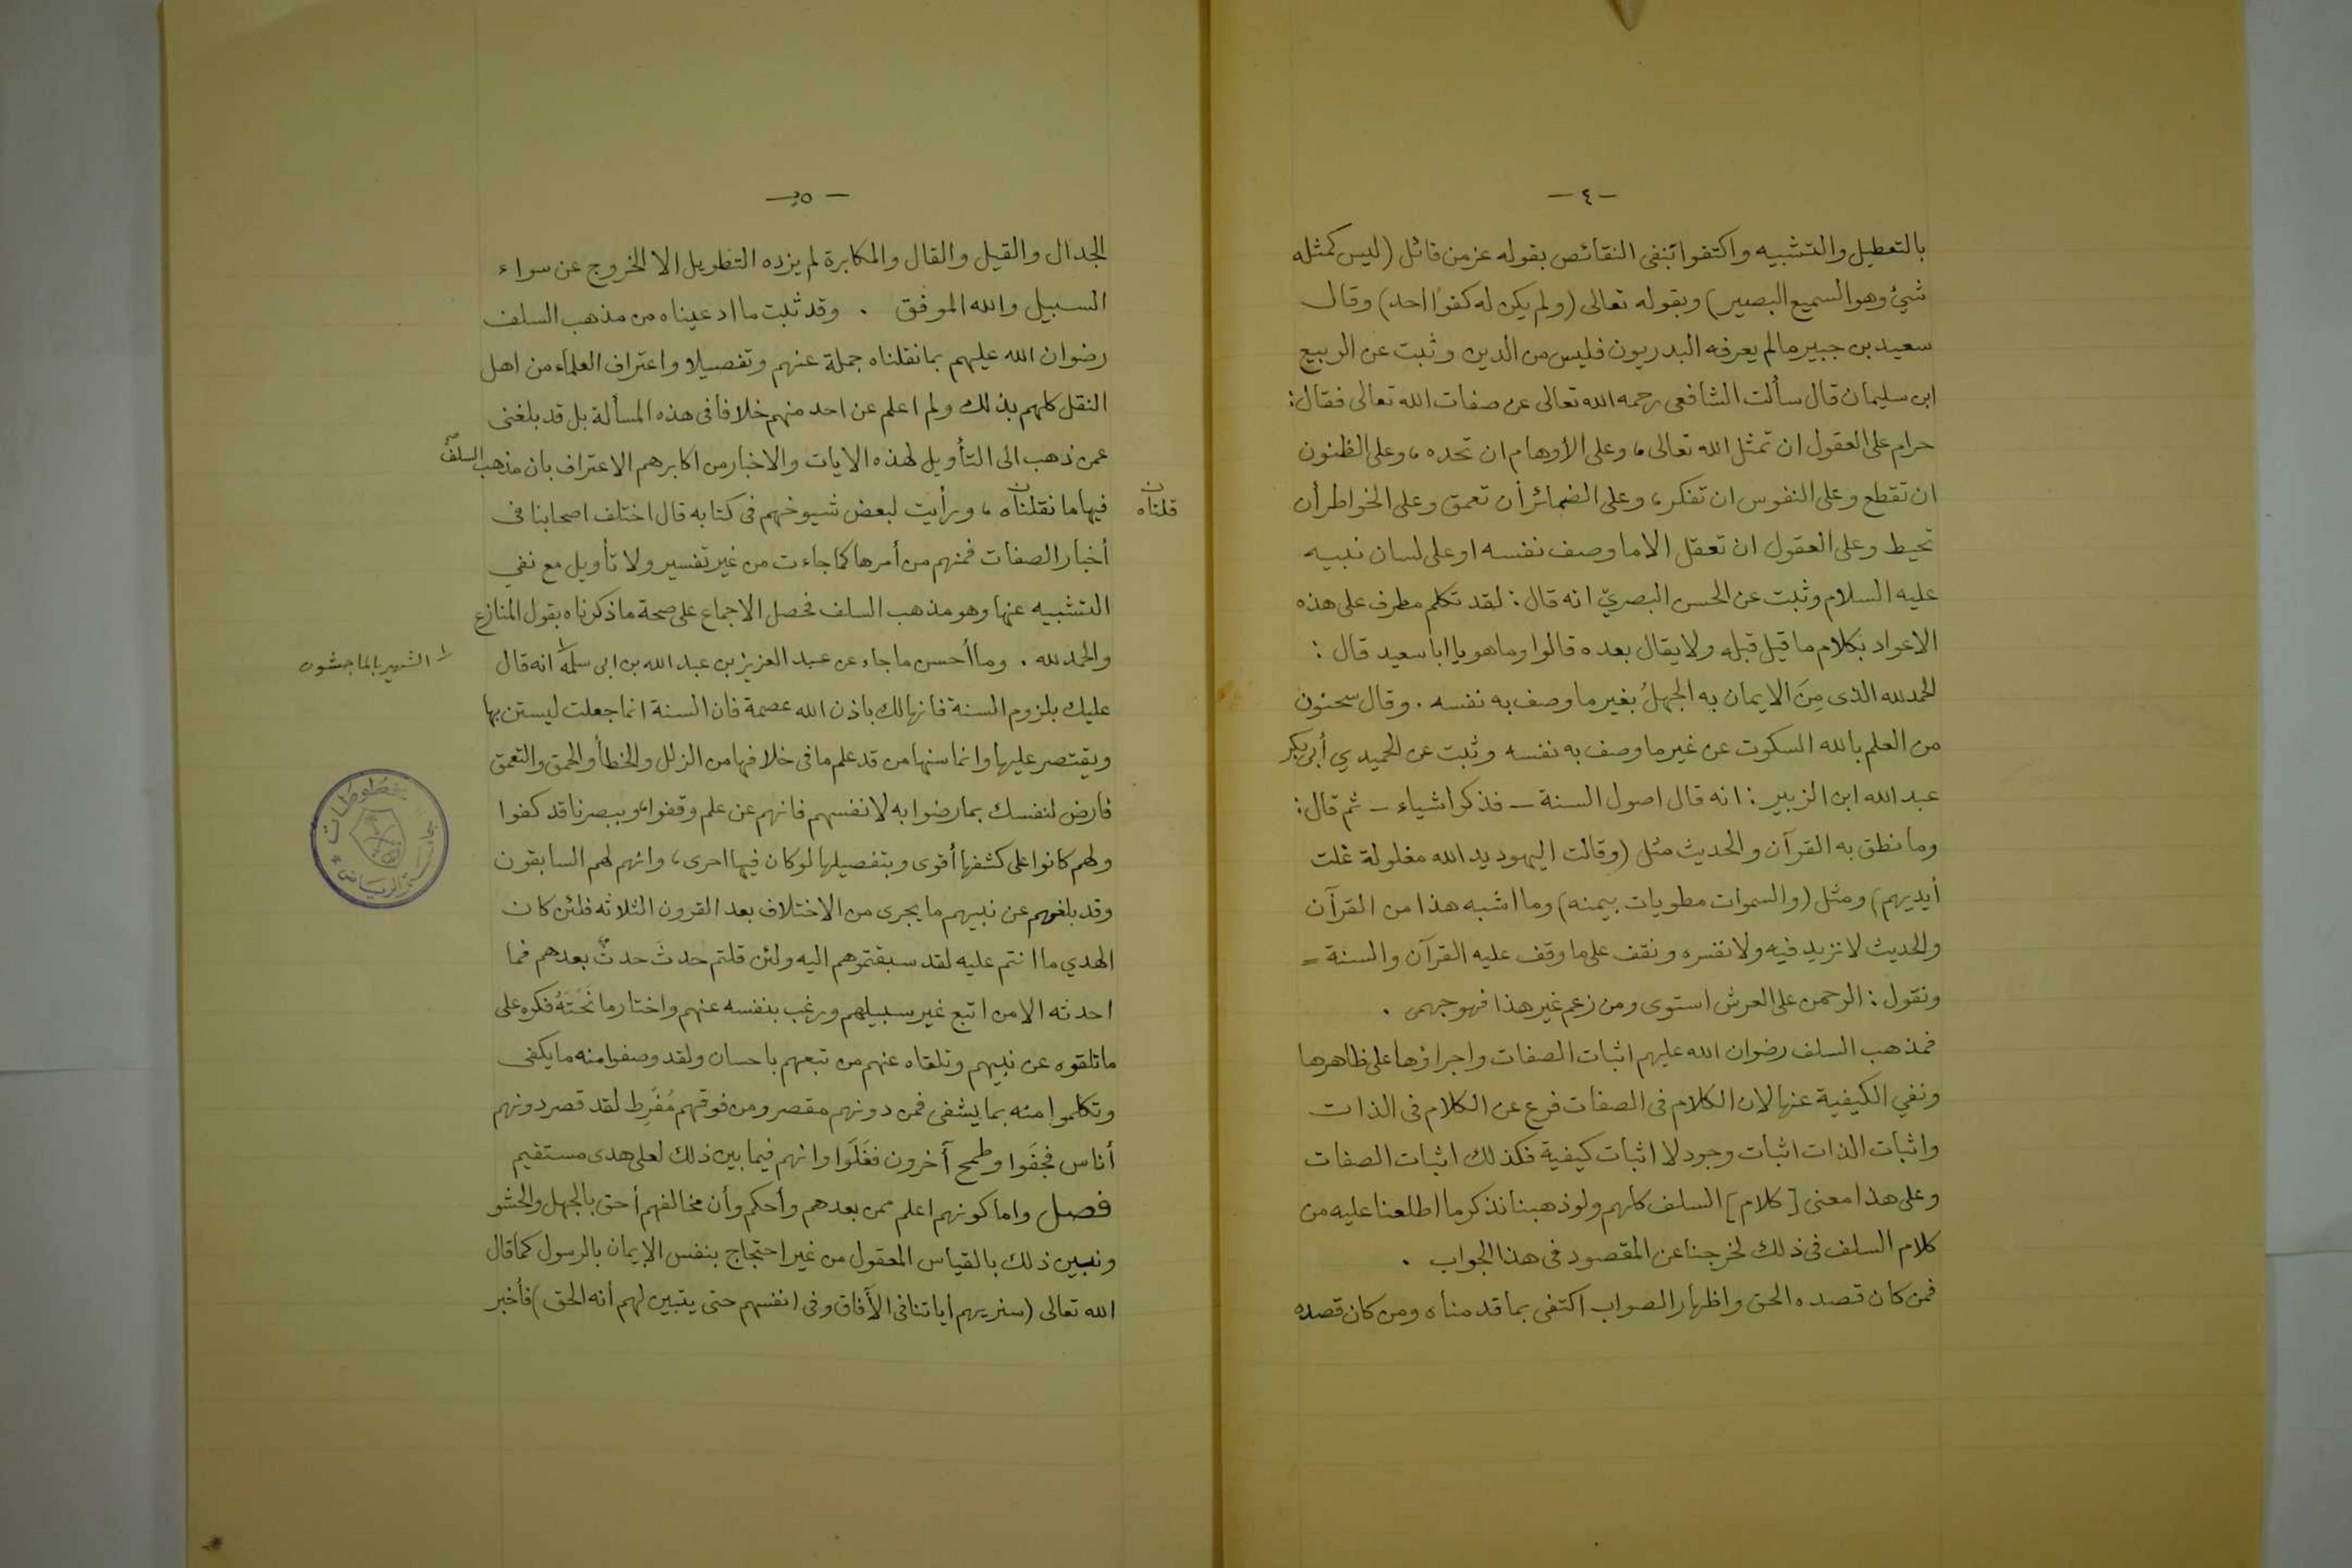 - ٤ -
بالتعطيل والتشبيه واكتفوا بنفى النقائص بقوله عز من قائل (ليس كمثله
شيئ وهو السميع البصير) وبقوله تعالى (ولم يكن له كفوًا احد) وقال
سعيد بن جبير مالم يعرفه البدريون فليس من الدين وثبت عن الربيع
ابن سليمان قال سألت الشافعى رحمه الله تعالى عن صفات الله تعالى فقال:
حرام على العقول ان تمثل الله تعالى، وعلى الأوهام ان تحده، وعلى الظنون
ان تقطع وعلى النفوس ان تفكر، وعلى الضمائر أن تعمق وعلى الخواطر أن
تحيط وعلى العقول ان تعقل الا ما وصف نفسه او على لسان نبيه
عليه السلام وثبت عن الحسن البصريّ انه قال: لقد تكلم مطرف على هذه
الاعواد بكلام ما قيل قبله ولا يقال بعده قالوا وما هو يا ابا سعيد قال:
الحمد لله الذى مِنَ الايمان به الجهلُ بغير ما وصف به نفسه. وقال سحنون
من العلم بالله السكوت عن غير ما وصف به نفسه وثبت عن الحميدي أبى بكر
عبد الله ابن الزبير: انه قال اصول السنة - فذكر اشياء - ثم قال:
وما نطق به القرآن والحديث مثل (وقالت اليهود يد الله مغلولة غلت
أيديهم) ومثل (والسموات مطويات بيمينه) وما اشبه هذا من القرآن
والحديث لا نزيد فيه ولا نفسره ونقف على ما وقف عليه القرآن والسنة =
ونقول: الرحمن على العرش استوى ومن زعم غير هذا فهو جهمى.
فمذهب السلف رضوان الله عليهم اثبات الصفات واجراؤها على ظاهرها
ونفي الكيفية عنها لان الكلام فى الصفات فرع عن الكلام فى الذات
واثبات الذات اثبات وجود لا اثبات كيفية فكذلك اثبات الصفات
وعلى هذا معنى [كلام] السلف كلهم ولو ذهبنا نذكر ما اطلعنا عليه من
كلام السلف فى ذلك لخرجنا عن المقصود فى هذا الجواب.
فمن كان قصده الحق واظهار الصواب اكتفى بما قدمناه ومن كان قصده
- ٥ -
الجدال والقيل والقال والمكابرة لم يزده التطويل الا الخروج عن سواء
السبيل والله الموفق. وقد ثبت ما ادعيناه من مذهب السلف
رضوان الله عليهم بما نقلناه جملة عنهم وتفصيلا واعتراف العلماء من اهل
النقل كلهم بذلك ولم اعلم عن احد منهم خلافا فى هذه المسألة بل قد بلغنى
عمن ذهب الى التأويل لهذه الايات والاخبار من اكابرهم الاعتراف بان مذهب السلف
فيها ما نقلناه، ورأيت لبعض شيوخهم فى كتابه قال اختلف اصحابنا فى
قلناه
أخبار الصفات فمنهم من أمرها كما جاءت من غير تفسير ولا تأويل مع نفي
التشبيه عنها وهو مذهب السلف فحصل الاجماع على صحة ما ذكرناه بقول المنازع
والحمد لله. وما أحسن ما جاء عن عبد العزيز بن عبد الله بن ابى سلمة انه قال
الشهير بالماجشون
عليك بلزوم السنة فانها لك باذن الله عصمة فان السنة انما جعلت ليستن بها
ويقتصر عليها وانما سنها من قد علم ما فى خلافها من الزلل والخطأ والحمق والتعمق
فارض لنفسك بما رضوا به لانفسهم فانهم عن علم وقفوا، وببصر ناقد كفوا
ولهم كانوا على كشفها أقوى وبتفصيلها لو كان فيها احرى، وانهم لهم السابقون
وقد بلغهم عن نبيهم ما يجرى من الاختلاف بعد القرون الثلاثه فلئن كان
الهدي ما انتم عليه لقد سبقتموهم اليه ولئن قلتم حدثَ حدثٌ بعدهم فما
احدثه الا من اتبع غير سبيلهم ورغب بنفسه عنهم واختار ما نَحَتَهُ فكره على
ما تلقوه عن نبيهم وتلقاه عنهم من تبعهم باحسان ولقد وصفوا منه ما يكفى
وتكلموا منه بما يشفى فمن دونهم مقصر ومن فوقهم مُفْرِط لقد قصر دونهم
أناس فجفَوا وطمح آخرون فغَلَوا وانهم فيما بين ذلك لعلى هدى مستقيم
فصل واما كونهم اعلم ممن بعدهم وأحكم وأن مخالفهم أحق بالجهل والحشو
ونبين ذلك بالقياس المعقول من غير احتجاج بنفس الإيمان بالرسول كما قال
الله تعالى (سنريهم اياتنا فى الأفاق وفى انفسهم حتى يتبين لهم أنه الحق) فأخبر
جامعة الرياض * مخطوطات